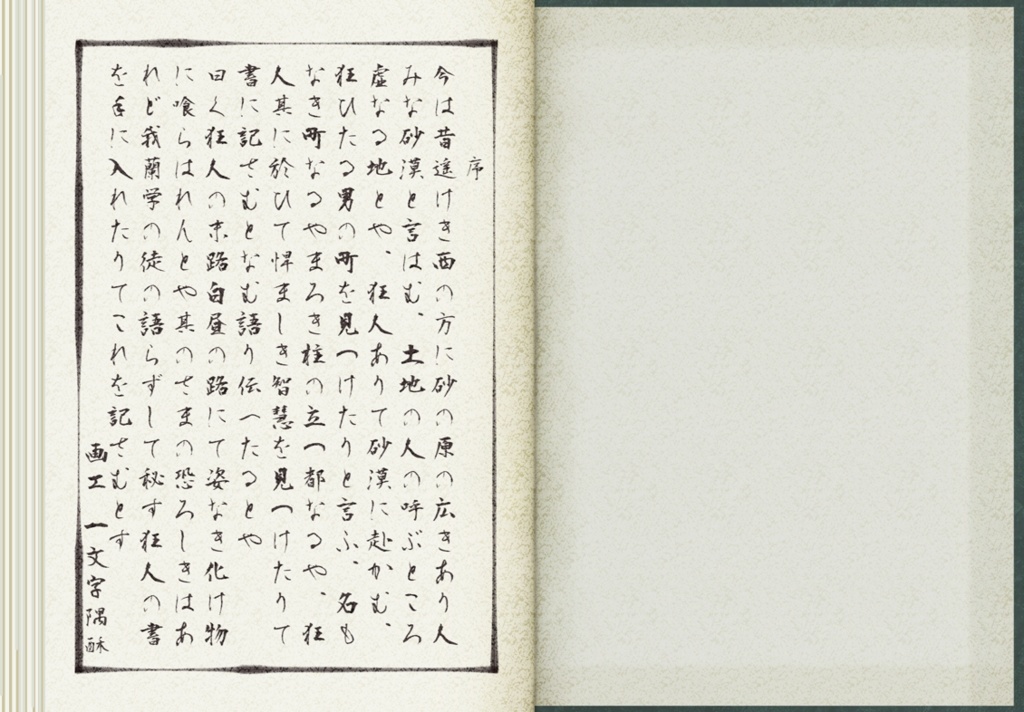 序
今は昔遥けき西の方に砂の原の広きあり人
みな砂漠と言はむ、土地の人の呼ぶところ
虚なる地とや、狂人ありて砂漠に赴かむ、
狂ひたる男の町を見つけたりと言ふ、名も
なき町なるやまろき柱の立つ都なるや、狂
人其に於ひて悍ましき智慧を見つけたりて
書に記さむとなむ語り伝へたるとや
曰く狂人の末路白昼の路にて姿なき化け物
に喰らはれんとや其のさまの恐ろしきはあ
れど我蘭学の徒の語らずして秘す狂人の書
を手に入れたりてこれを記さむとす
画工 一文字隅酥